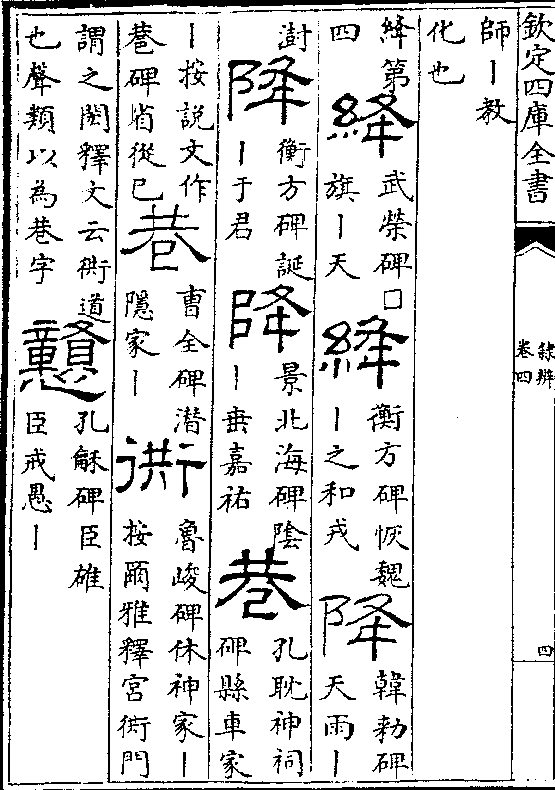 欽定四庫全書
隸辨
卷四
四
師丨教
化也
絳第
四
絳
武榮碑囗
旗丨天
絳
衡方碑恢魏
丨之和戎
降
韓勑碑
天雨丨
澍
降
衡方碑誕
丨于君
降
景北海碑陰
丨垂嘉祐
巷
孔耽神祠
碑縣車家
丨按說文作
巷碑省從巳
巷
曹全碑潜
隱家丨
衖
魯峻碑休神家丨
按爾雅釋宮衖門
謂之閎釋文云衖道
也聲類以為巷字
戇
孔龢碑臣雄
臣戒愚丨